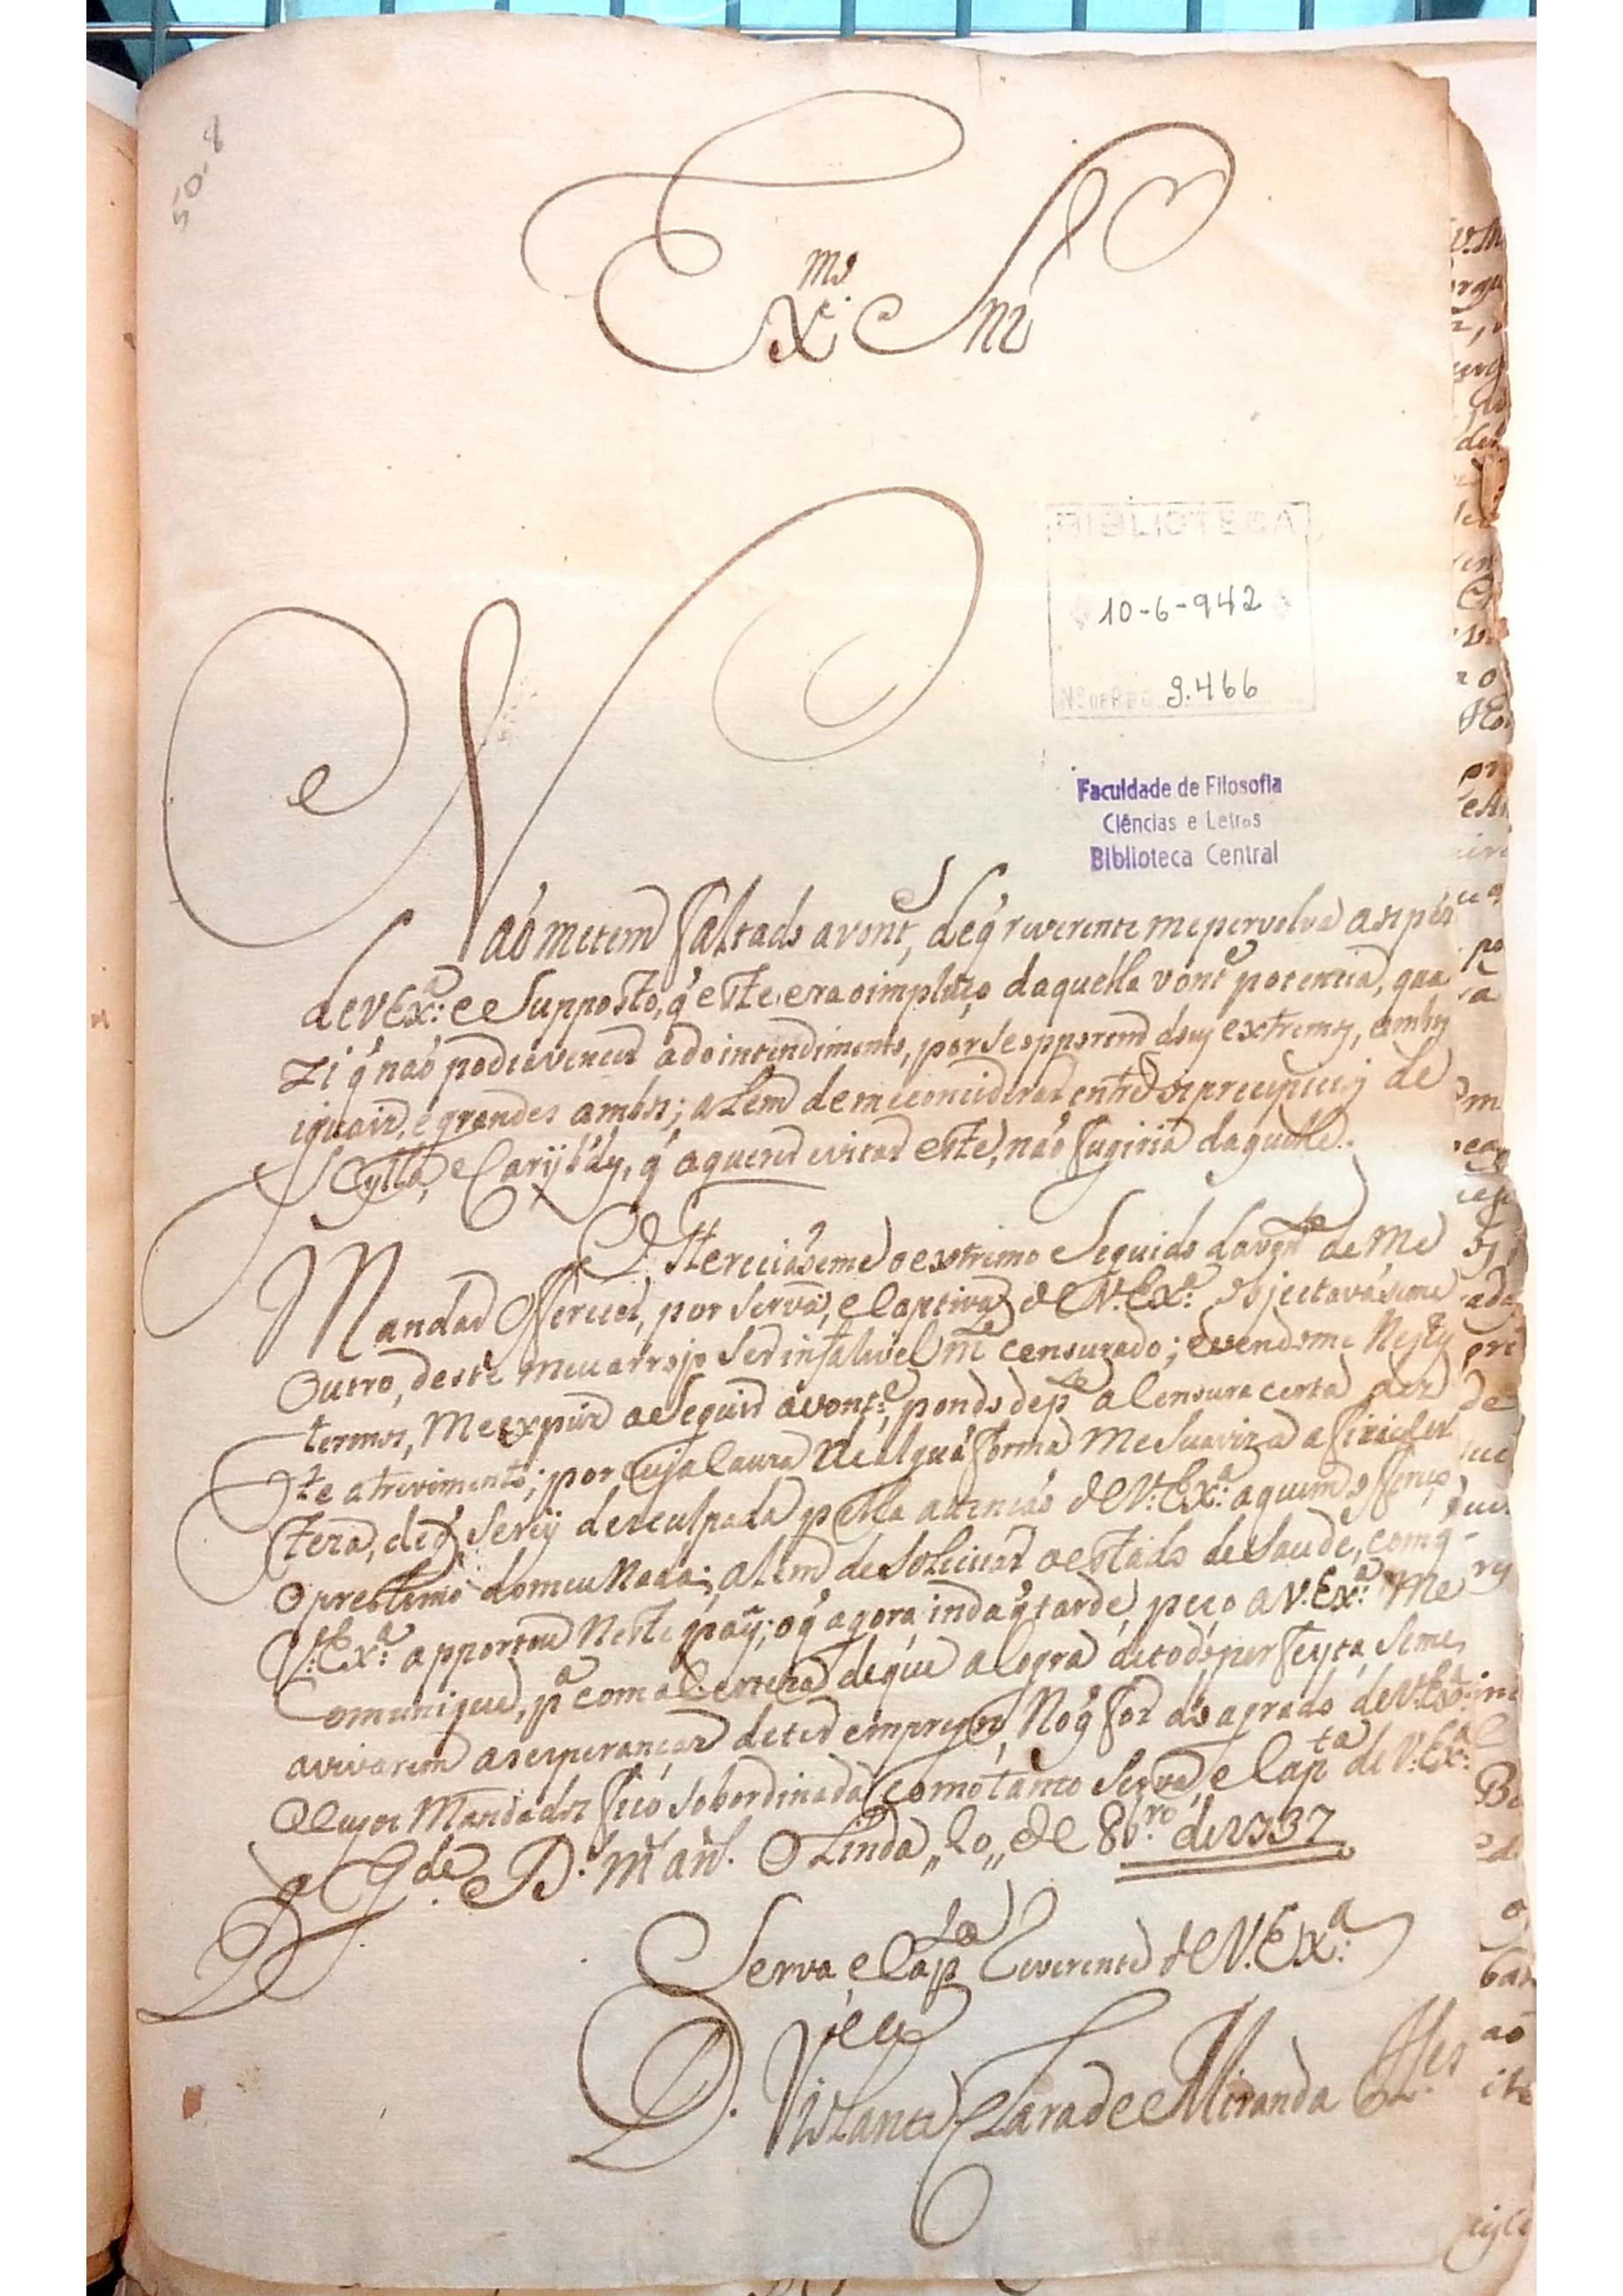 50-8
Ex.mo Snr
BIBLIOTECA
10-6-942
9.466
Faculdade de Filosofia
Ciências e Letras
Biblioteca Central
Naõ metem faltado avont.e, deq' reverente me pervolva aos pés
de V Ex.a: e Supposto, q' este era o impulço daquella vont.e potencia, qua
zi q' naõ podia vencer ado intendimento, por Se opporem dous extremos, ambos
iguais, e grandes ambos; alem de me considerar entre os precipicios de
Scylla, e Carijbdy, q' a querer evitar este, naõ fugiria daquelle.
Offereciaseme o extremo Seguido da vont.e de Me
Mandar Offerecer, por Serva, e Captiva de V. Ex.a: objectavaseme
Outro, deste meu arrojo Ser infalivel m.te censurado; e vendome Nestes
termos, Me expús a Seguir avont.e, pondo dep.te a Censura certa des
te atrevimento; por cuja Cauza de algũa forma Me Suaviza a
teza, de q' Serej desculpada pella attencaõ de V. Ex.a: a quem offereço
O prestimo do meu Nada; alem de Solicitar o estado de Saude, com q'
V. Ex.a: apportou Neste paiz; o q' agora inda q' tarde, peço a V. Ex.a: Me
Comunique, p.a com a Certeza de que a Logra de todo perfeyta, Seme
avivarem as esperanças de ter empregos, No q' for do agrado de V. Ex.a:
A Cujos Mandados fico Sobordinada Como tanto Serva, e Cap.ta de V. Ex.a:
q' G.de D.s m.s an.s. Olinda,, 20,, de 8br.o de 1737
Serva, e Cap.ta Reverente de V. Ex.a:
D. Violante Clara de Miranda